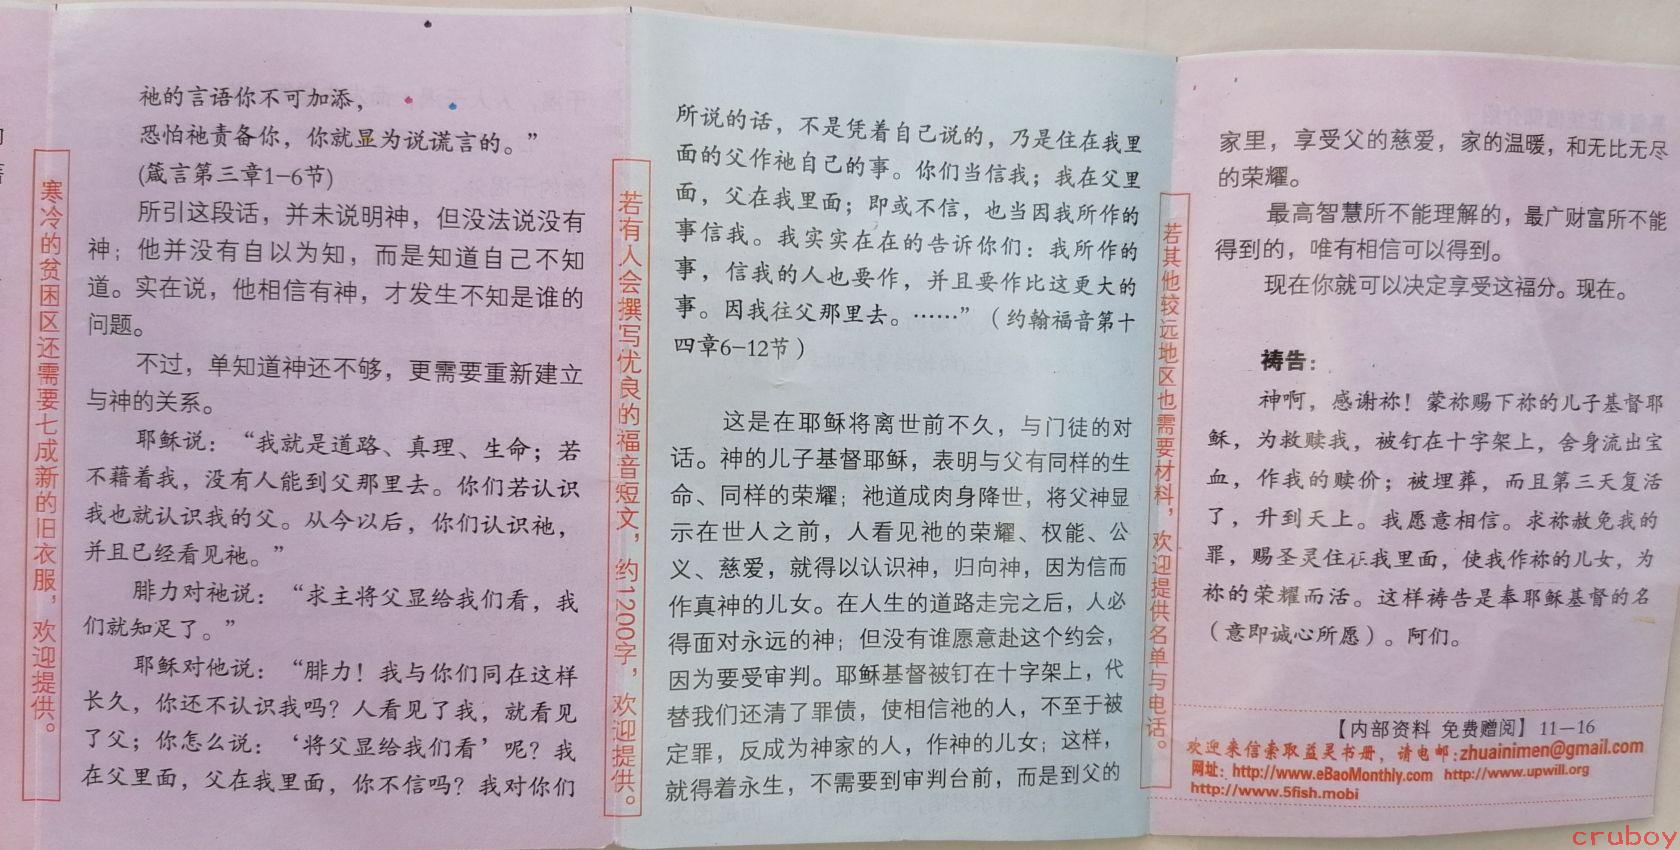 寒冷的贫困区还需要七成新的旧衣服，欢迎提供。
祂的言语你不可加添，
恐怕祂责备你，你就显为说谎言的。”
(箴言第三章1-6节)
所引这段话，并未说明神，但没法说没有
神；他并没有自以为知，而是知道自己不知
道。实在说，他相信有神，才发生不知是谁的
问题。
不过，单知道神还不够，更需要重新建立
与神的关系。
耶稣说：“我就是道路、真理、生命；若
不藉着我，没有人能到父那里去。你们若认识
我也就认识我的父。从今以后，你们认识祂，
并且已经看见祂。”
腓力对祂说：“求主将父显给我们看，我
们就知足了。”
耶稣对他说：“腓力！我与你们同在这样
长久，你还不认识我吗？人看见了我，就看见
了父；你怎么说：‘将父显给我们看’呢？我
在父里面，父在我里面，你不信吗？我对你们
若有人会撰写优良的福音短文，约1200字，欢迎提供。
所说的话，不是凭着自己说的，乃是住在我里
面的父作祂自己的事。你们当信我；我在父里
面，父在我里面；即或不信，也当因我所作的
事信我。我实实在在的告诉你们：我所作的
事，信我的人也要作，并且要作比这更大的
事。因我往父那里去。……”（约翰福音第十
四章6-12节）
这是在耶稣将离世前不久，与门徒的对
话。神的儿子基督耶稣，表明与父有同样的生
命、同样的荣耀；祂道成肉身降世，将父神显
示在世人之前，人看见祂的荣耀、权能、公
义、慈爱，就得以认识神，归向神，因为信而
作真神的儿女。在人生的道路走完之后，人必
得面对永远的神；但没有谁愿意赴这个约会，
因为要受审判。耶稣基督被钉在十字架上，代
替我们还清了罪债，使相信祂的人，不至于被
定罪，反成为神家的人，作神的儿女；这样，
就得着永生，不需要到审判台前，而是到父的
若其他较远地区也需要材料，欢迎提供名单与电话。
家里，享受父的慈爱，家的温暖，和无比无尽
的荣耀。
最高智慧所不能理解的，最广财富所不能
得到的，唯有相信可以得到。
现在你就可以决定享受这福分。现在。
祷告：
神啊，感谢祢！蒙祢赐下祢的儿子基督耶
稣，为救赎我，被钉在十字架上，舍身流出宝
血，作我的赎价；被埋葬，而且第三天复活
了，升到天上。我愿意相信。求祢赦免我的
罪，赐圣灵住在我里面，使我作祢的儿女，为
祢的荣耀而活。这样祷告是奉耶稣基督的名
（意即诚心所愿）。阿们。
【内部资料 免费赠阅】11-16
欢迎来信索取益灵书册，请电邮:zhuainimen@gmail.com
网址：http://www.eBaoMonthly.com http://www.upwill.org
http://www.5fish.mobi
cruboy